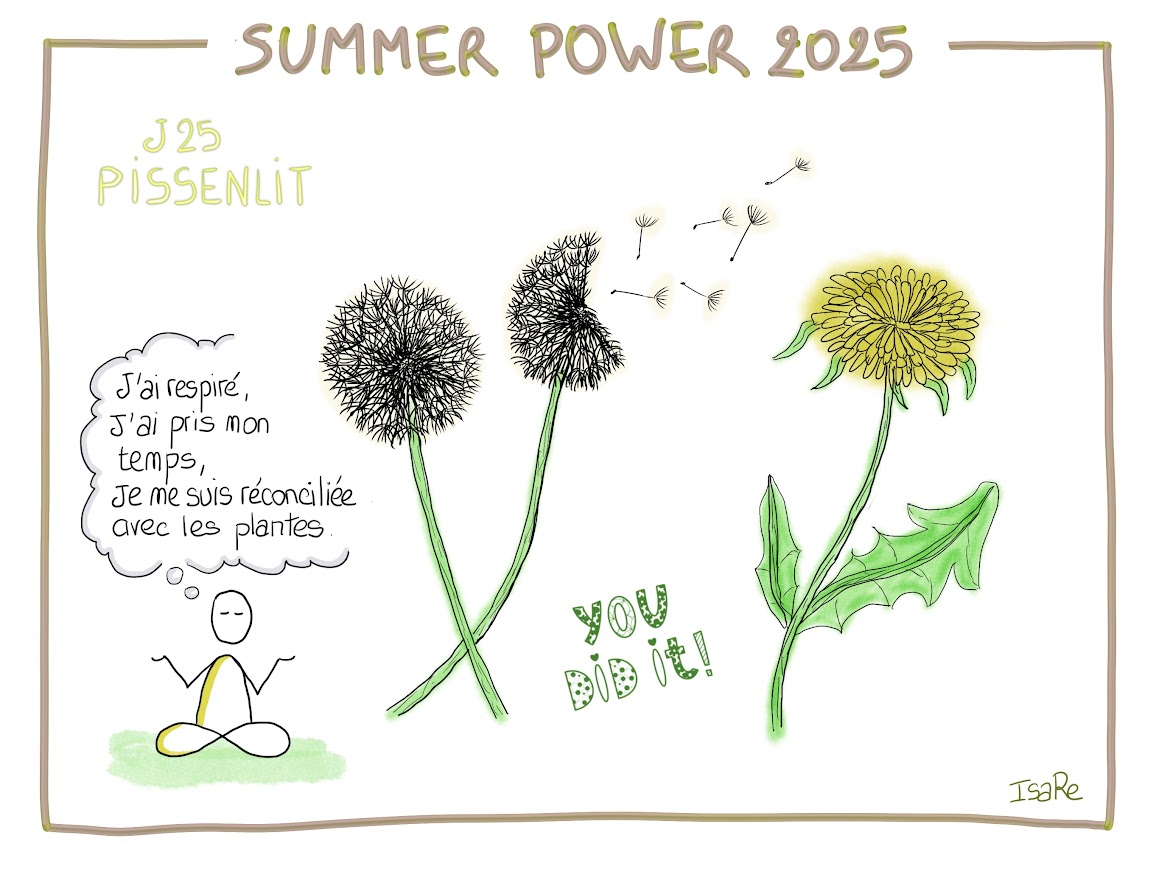 SUMMER POWER 2025
J25
PISSENLIT
J'ai respiré,
J'ai pris mon
temps,
Je me suis réconciliée
avec les plantes.
YOU
DID it!
IsaRe